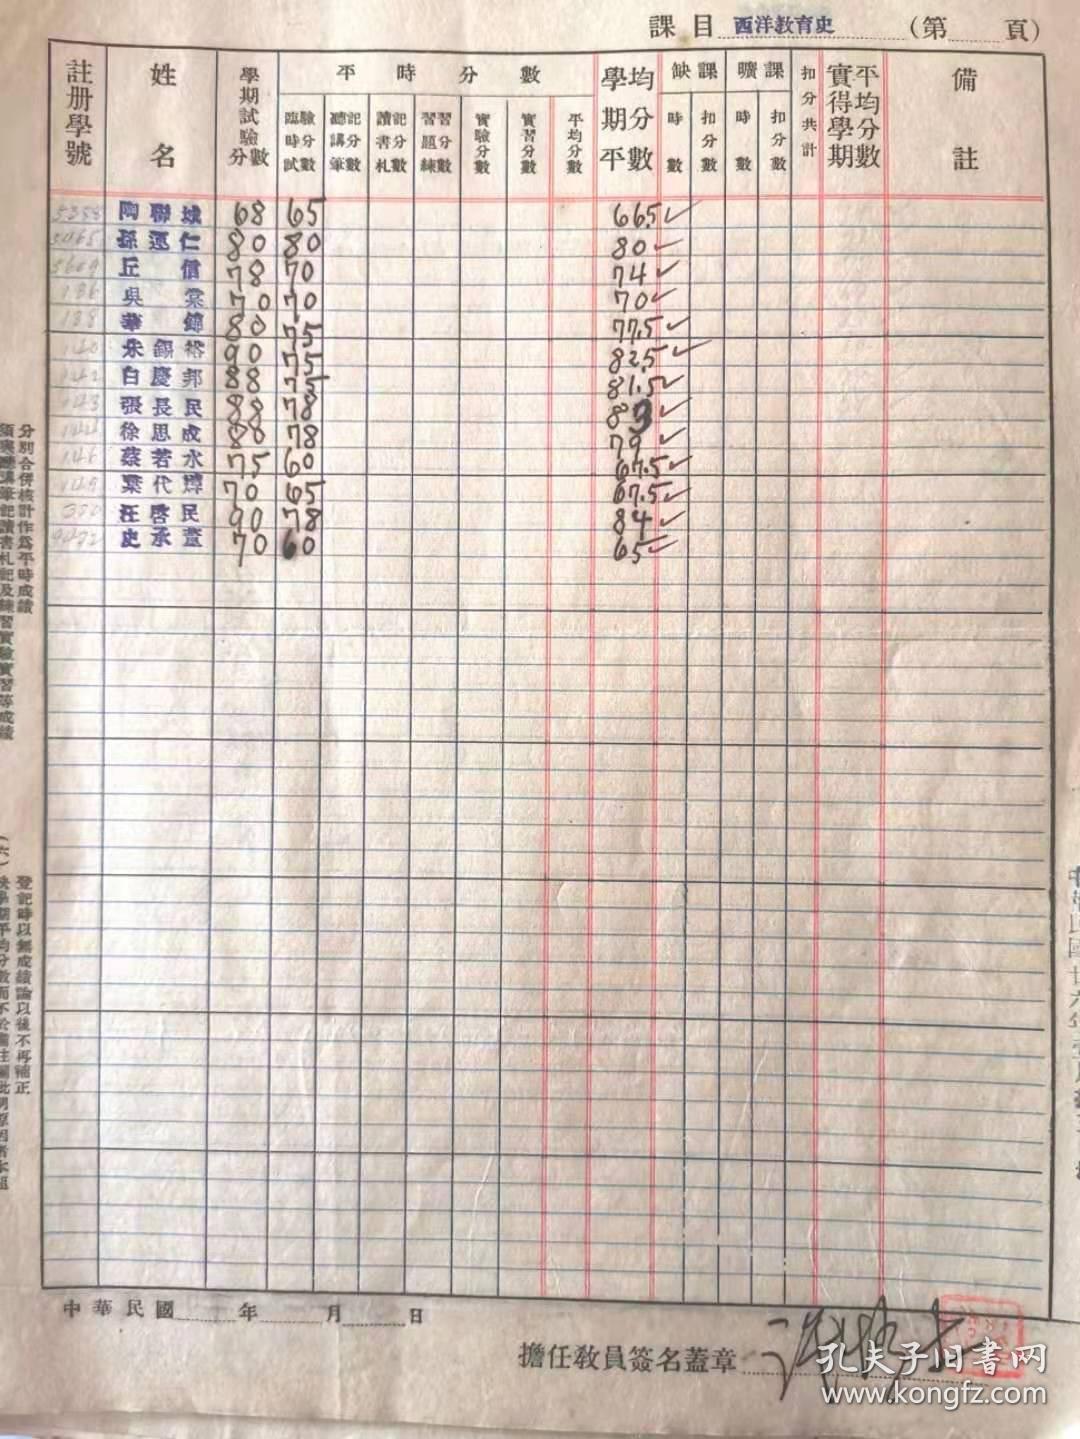 課目 西洋教育史 (第 頁)
註册學號 姓名 學期試驗分數 平時分數 學期平均分數 缺課 曠課 扣分共計 實得學期平均分數 備註
臨時試驗分數 聽講筆記分數 讀書札記分數 習題練習分數 實驗分數 實習分數 平均分數 時數 扣分數 時數 扣分數
陶聯城 68 65 66.5
孫運仁 80 80 80
丘信 78 70 74
吳棠 70 70 70
華錦 80 75 77.5
朱錫裕 90 75 82.5
白慶邦 88 75 81.5
張長民 88 78 83
徐思成 80 78 79
蔡若水 75 60 67.5
葉代 70 65 67.5
汪啓民 90 78 84
史承 70 60 65
中華民國 年 月 日
擔任教員簽名蓋章
分別合併核計作爲平時成績
須與聽講筆記讀書札記及練習實驗實習等成績
登記時以無成績論以後不再補正
孔夫子旧书网
www.kongfz.com